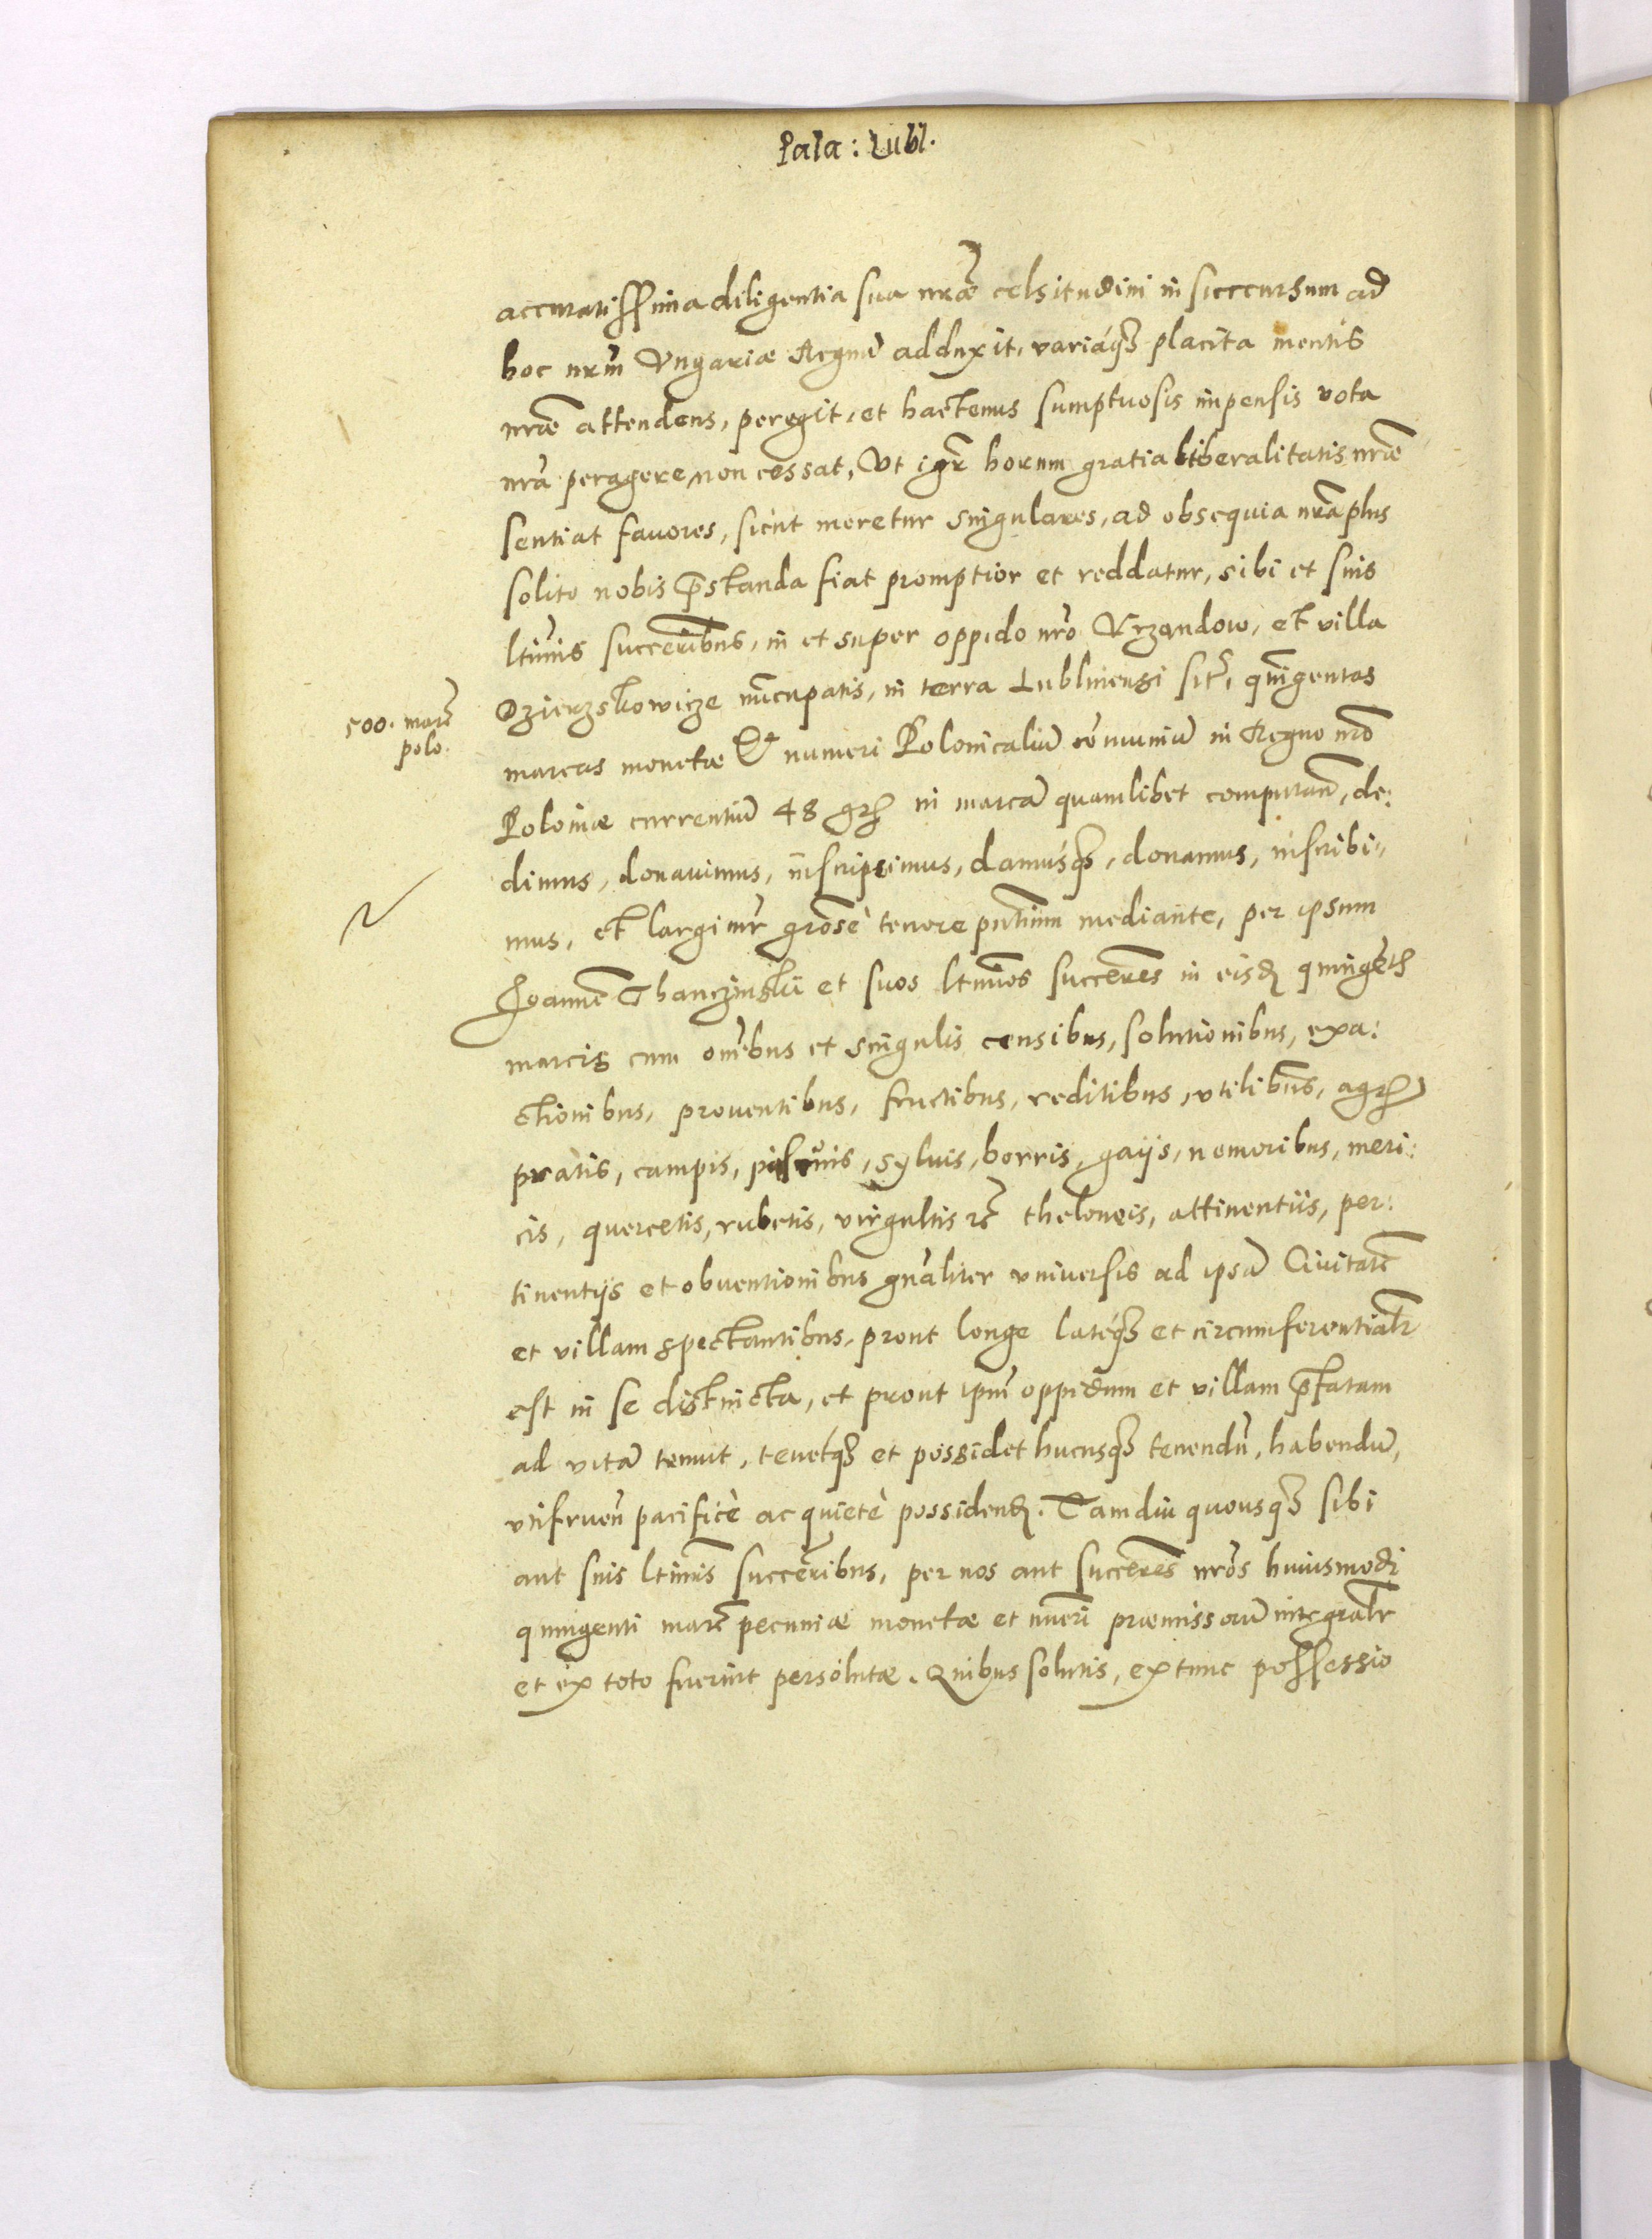 Pala: Lubl.
accuratissima diligentia sua nrae celsitudini in succursum ad
hoc nrm Vngariae Regnu adduxit, variaq placita mentis
nrae attendens, peregit, et hactenus sumptuosis impensis vota
nra peragere non cessat, Vt igr horum gratia liberalitatis nrae
sentiat fauores, sicut meretur singulares, ad obsequia nra plus
solito nobis pstanda fiat promptior et reddatur, sibi et suis
ltimis succeribus, in et super oppido nro Vrzandow, et villa
Dzierzskowicze nucupatis, in terra Lublinensi sit, quigentas
500. marc
polo.
marcas monetae Et numeri Polonicaliu comuniu in Regno nro
Poloniae currentiu 48 gr in marca quamlibet computan, de:
dimus, donauimus, inscripsimus, damusq, donamus, inscribi-
mus, et largimr grose tenore pntium mediante, per ipsum
Joanne Thanczinski et suos ltimos succeres in eisd quinget
marcis cum omibus et singulis censibus, solutionibus, exa:
ctionibus, prouentibus, fructibus, reditibus, vtilibus, agr
pratis, campis, piscinis, syluis, borris, gaijs, nemoribus, meri:
cis, quercetis, rubetis, virgultis rc theloneis, attinentiis, per:
tinentijs et obuentionibus gnaliter vniuersis ad ipsa Ciuitate
et villam spectantibus, prout longe lateq et circumferentialr
est in se distincta, et prout ipm oppidum et villam pfatam
ad vita tenuit, tenetq et possidet hucusq tenendu, habendu,
vtifruen pacificè ac quietè possidend. Tamdiu quousq sibi
aut suis ltimis succeribus, per nos aut succeres nros huiusmodi
quingenti marc pecuniae monetae et nueri praemissoru integralr
et ex toto fuerint persolutae. Quibus solutis, extunc possessio